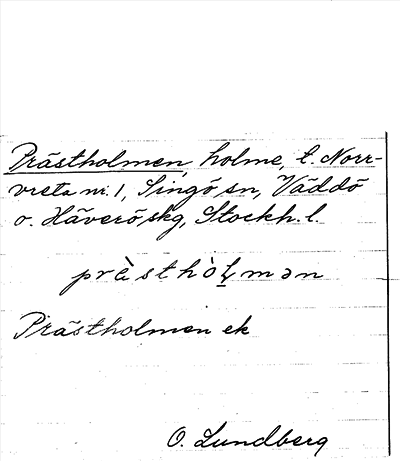 Prästholmen, holme, t. Norr-
vreta nr. 1, Singö sn, Väddö
o. Häverö skg, Stockh. l.
prà̀sthòl̥mən
Prästholmen ek
O. Lundberg